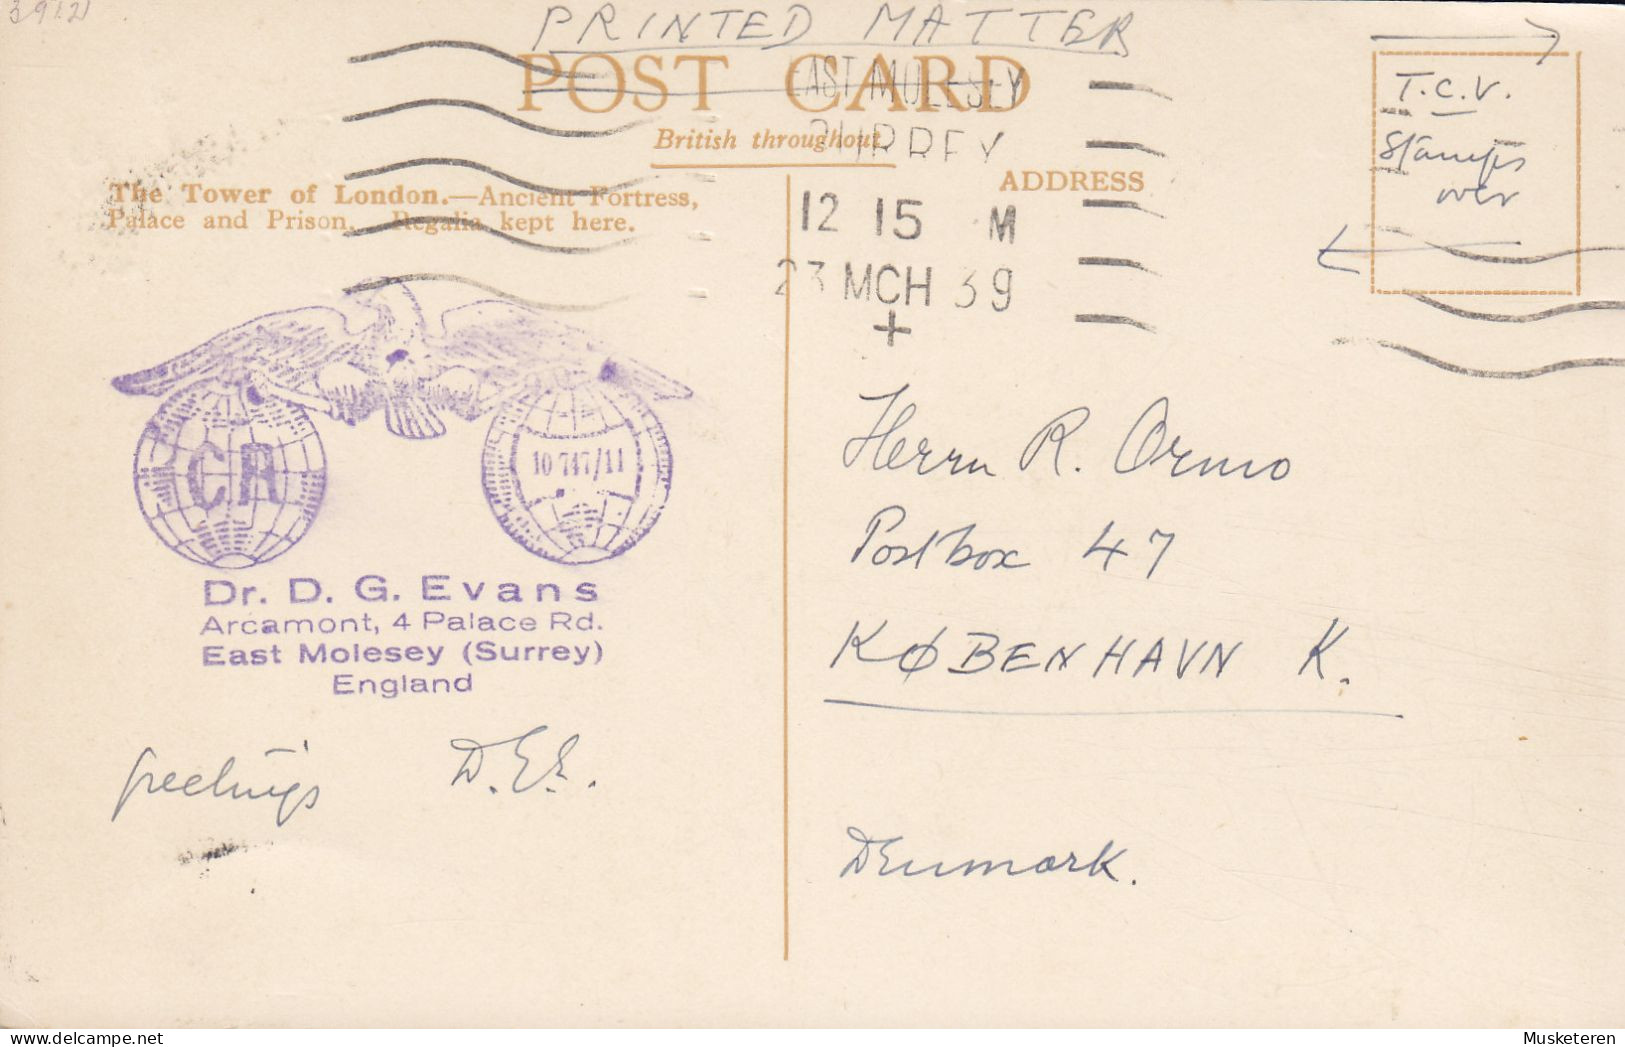 3912
PRINTED MATTER
POST CARD
British throughout
EAST MOLESEY
SURREY
12 15 M
23 MCH 39
ADDRESS
T.C.V.
Stamps
over
The Tower of London.—Ancient Fortress,
Palace and Prison. Regalia kept here.
CR
10 747/11
Dr. D. G. Evans
Arcamont, 4 Palace Rd.
East Molesey (Surrey)
England
greetings D.G.E.
Herrn R. Ormo
Postbox 47
KØBENHAVN K.
Denmark.
Musketeren